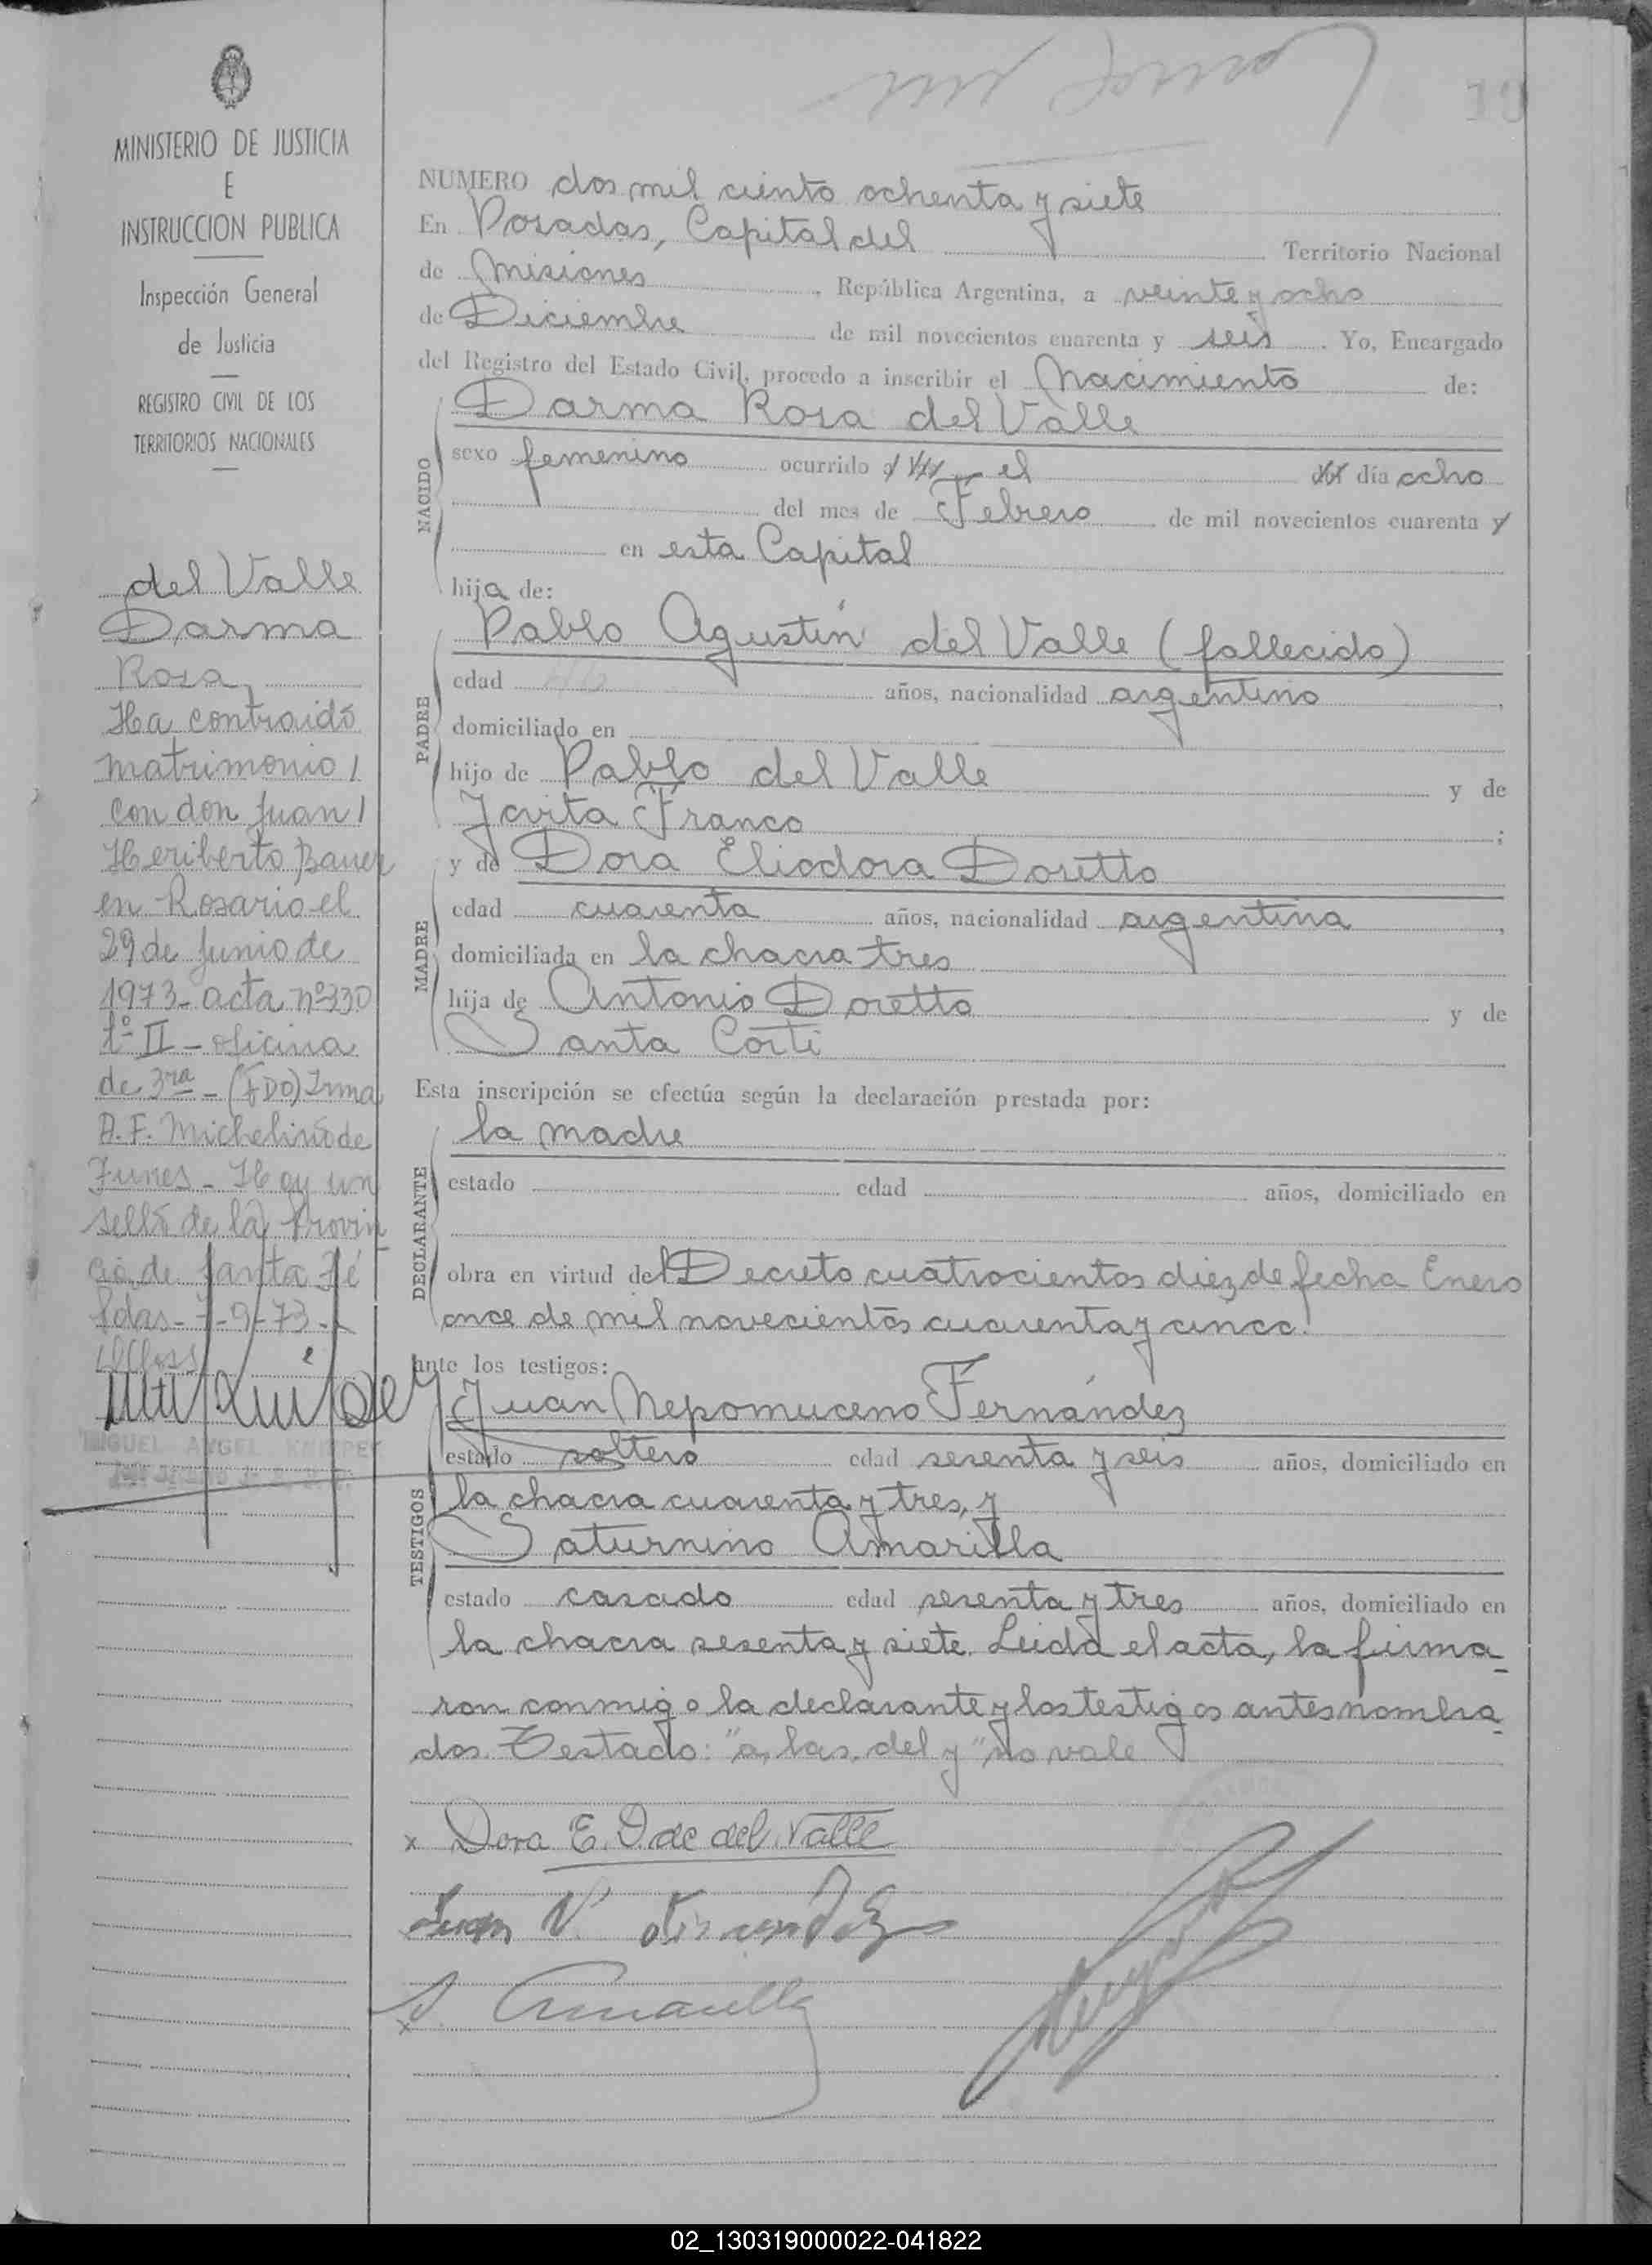 10
MINISTERIO DE JUSTICIA
E
INSTRUCCION PUBLICA
Inspección General
de Justicia
REGISTRO CIVIL DE LOS
TERRITORIOS NACIONALES
del Valle
Darma
Rosa
Ha contraido
matrimonio
con don Juan
Heriberto Bauer
en Rosario el
29 de Junio de
1973- acta nº 330
tº II - oficina
de 3ra - (FDO) Irma
A. F. Michelino de
Funes - Hay un
sello de la Provin
cia de Santa Fé
Pdas- 7-9-73-
MIGUEL ANGEL
NUMERO dos mil ciento ochenta y siete
En Posadas, Capital del Territorio Nacional
de Misiones, República Argentina, a veinte y ocho
de Diciembre de mil novecientos cuarenta y seis. Yo, Encargado
del Registro del Estado Civil, procedo a inscribir el Nacimiento de:
NACIDO
Darma Rosa del Valle
sexo femenino ocurrido a las el del día ocho
del mes de Febrero de mil novecientos cuarenta y
en esta Capital
hija de:
PADRE
Pablo Agustín del Valle (fallecido)
edad años, nacionalidad argentino,
domiciliado en
hijo de Pablo del Valle y de
Jovita Franco;
MADRE
y de Dora Eliodora Doretto
edad cuarenta años, nacionalidad argentina,
domiciliada en la chacra tres
hija de Antonio Doretto y de
Santa Corti
Esta inscripción se efectúa según la declaración prestada por:
DECLARANTE
la madre
estado edad años, domiciliado en
obra en virtud del Decreto cuatrocientos diez de fecha Enero
once de mil novecientos cuarenta y cinco.
ante los testigos:
TESTIGOS
Juan Nepomuceno Fernández
estado soltero edad sesenta y seis años, domiciliado en
la chacra cuarenta y tres, y
Saturnino Amarilla
estado casado edad sesenta y tres años, domiciliado en
la chacra sesenta y siete. Leida el acta, la firma-
ron conmigo la declarante y los testigos antes nombra-
dos. Testado: "a, las, del y" no vale
x Dora E. D. de del Valle
Juan N. Fernández
x S. Amarilla
02_130319000022-041822